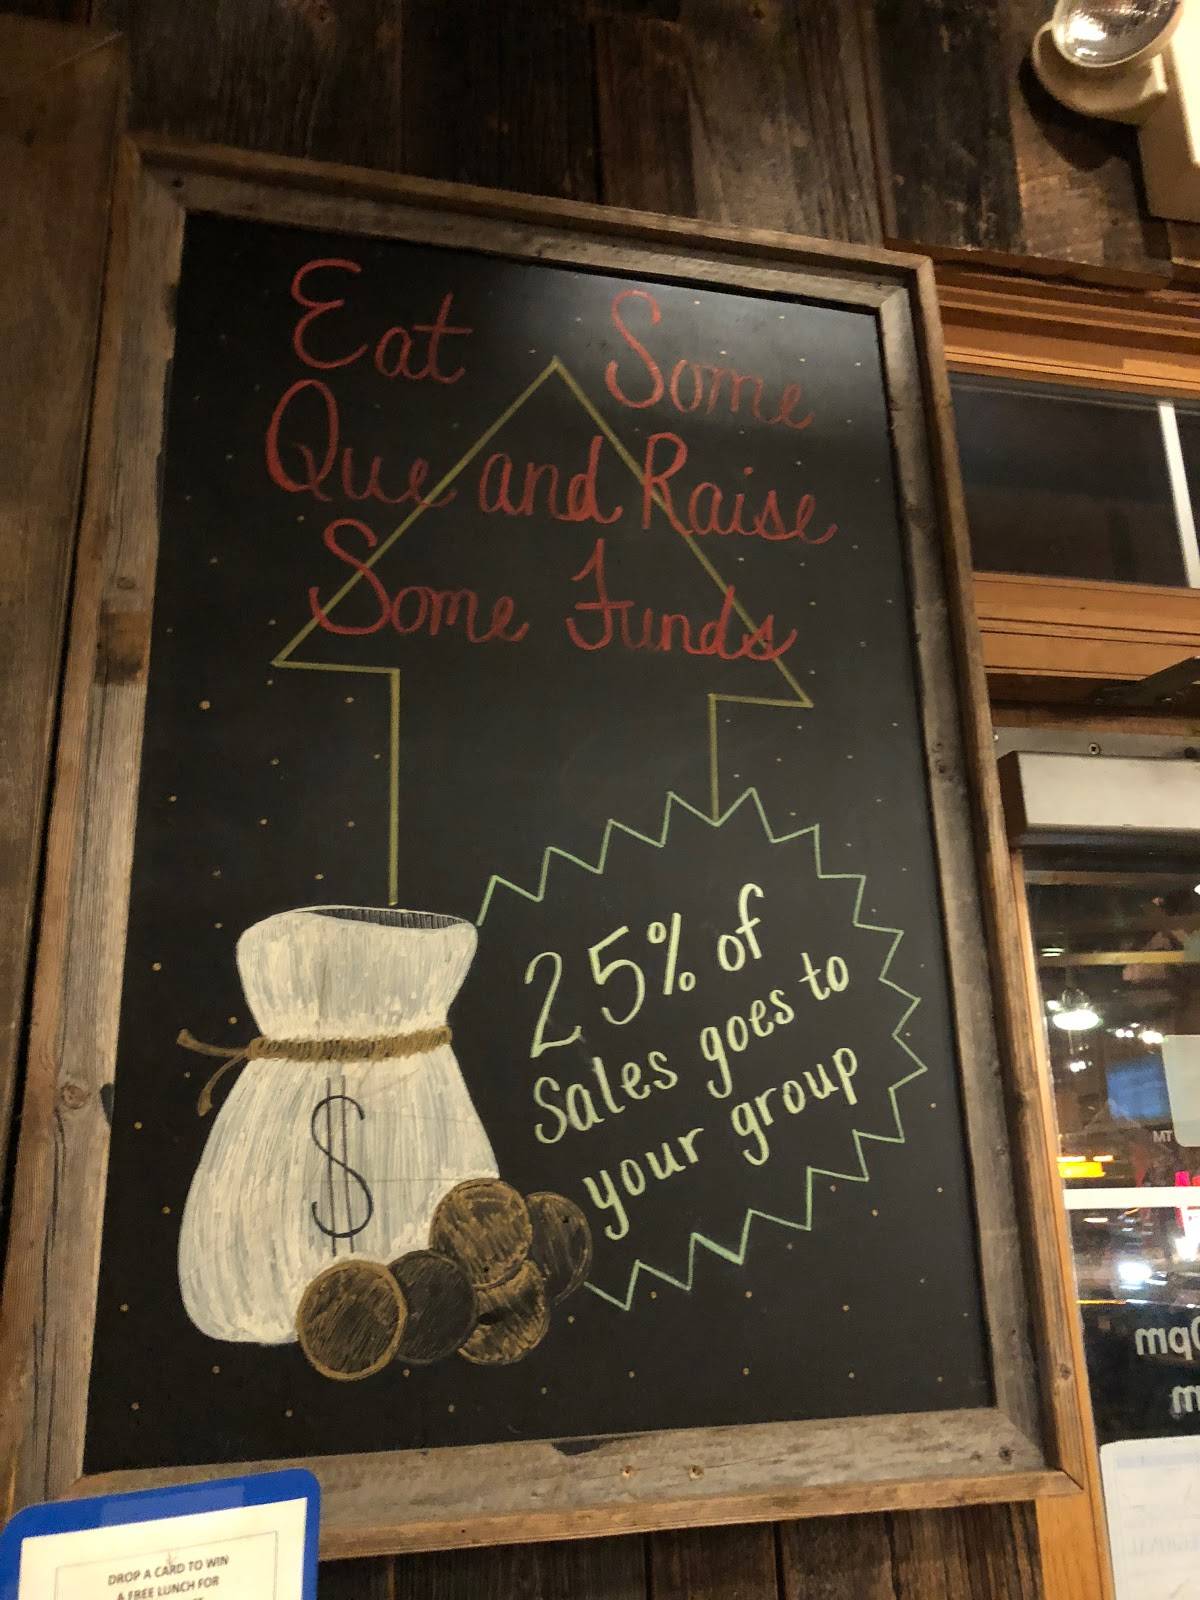 Eat Some
Que and Raise
Some Funds
25% of
Sales goes to
your group
$
DROP A CARD TO WIN
A FREE LUNCH FOR
MT
0pm